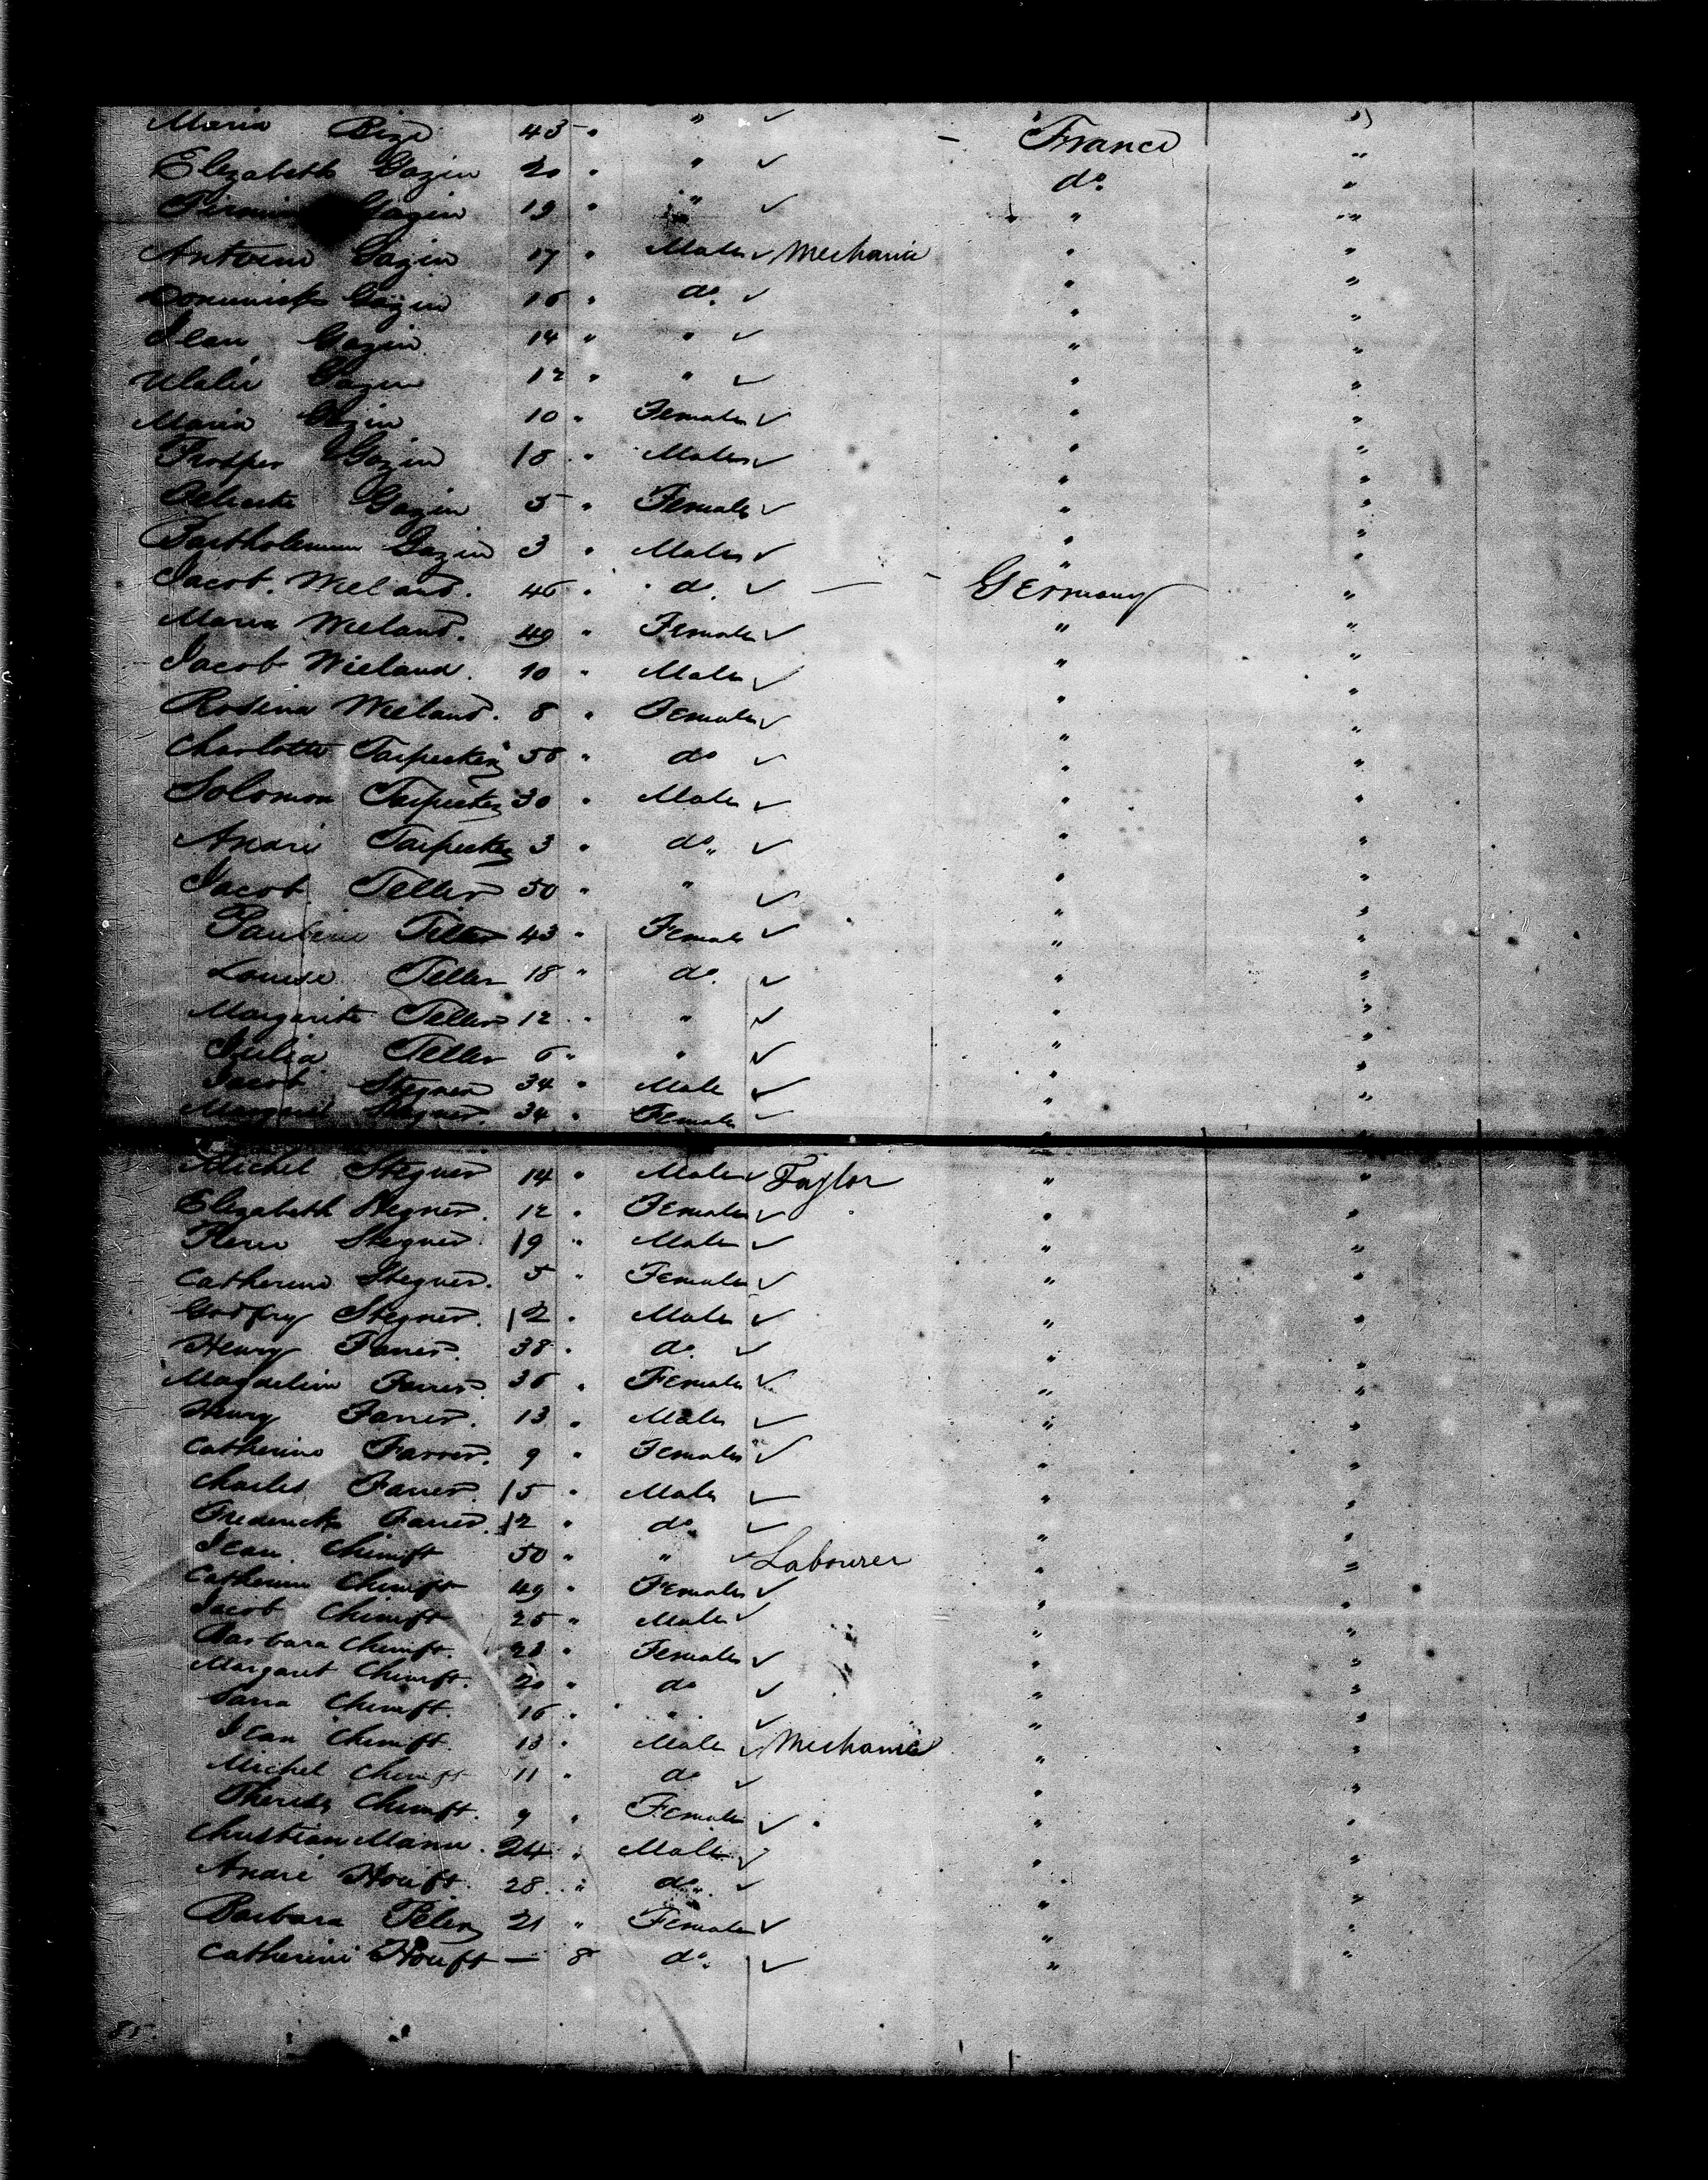 Maria Bize 45 " " ✓ — France "
Elizabeth Gazin 20 " " ✓ do. "
Gazin 19 " " ✓ " "
Antoine Gazin 17 " Males ✓ Mechanic " "
Dominick Gazin 16 " do. ✓ " "
Jean Gazin 14 " " ✓ " "
Gazin 12 " " ✓ " "
Maria Gazin 10 " Females ✓ " "
Prosper Gazin 8 " Males ✓ " "
Gazin 5 " Females ✓ " "
Gazin 3 " Males ✓ " "
Jacob. Wieland. 46 " do. ✓ — Germany "
Maria Wieland. 49 " Females ✓ " "
Jacob Wieland. 10 " Males ✓ " "
Rosina Wieland. 8 " Females ✓ " "
Charlotte " do ✓ " "
Solomon 30 " Males ✓ " "
André 3 " do. ✓ " "
Jacob Teller 50 " " ✓ " "
Pauline Teller 43 " Females ✓ " "
Louise Teller 18 " do. ✓ " "
Margarite Teller 12 " " ✓ " "
Julia Teller 6 " " ✓ " "
Jacob Stegner 34 " Male ✓ " "
Stegner. 34 " Females ✓ " "
Michel Stegner 14 " Males ✓ Taylor " "
Elizabeth Stegner. 12 " Females ✓ " "
Stegner. 9 " Males ✓ " "
Catherine Stegner. 5 " Females ✓ " "
Godfrey Stegner. 2 " Males ✓ " "
Henry Farrer. 38 " do. ✓ " "
Magdeline Farrer. 36 " Females ✓ " "
Henry Farrer. 13 " Males ✓ " "
Catherine Farrer. 9 " Females ✓ " "
Charles Farrer. 5 " Males ✓ " "
Frederick Farrer. 2 " do. ✓ " "
Jean Chimft 50 " " ✓ Labourer " "
Catherine Chimft 49 " Females ✓ " "
Jacob Chimft 25 " Males ✓ " "
Barbara Chimft. " Females ✓ " "
Margaret Chimft. 20 " do ✓ " "
Sara Chimft. 16 " " ✓ " "
Jean Chimft. 13 " Male ✓ Mechanic " "
Michel Chimft 11 " do ✓ " "
Chimft. 9 " Females ✓ " "
Christian Mann. 24 " Male ✓ " "
André Houft. 28 " do. ✓ " "
Barbara 21 " Females ✓ " "
Catherine Houft — 8 do. ✓ " "
85.